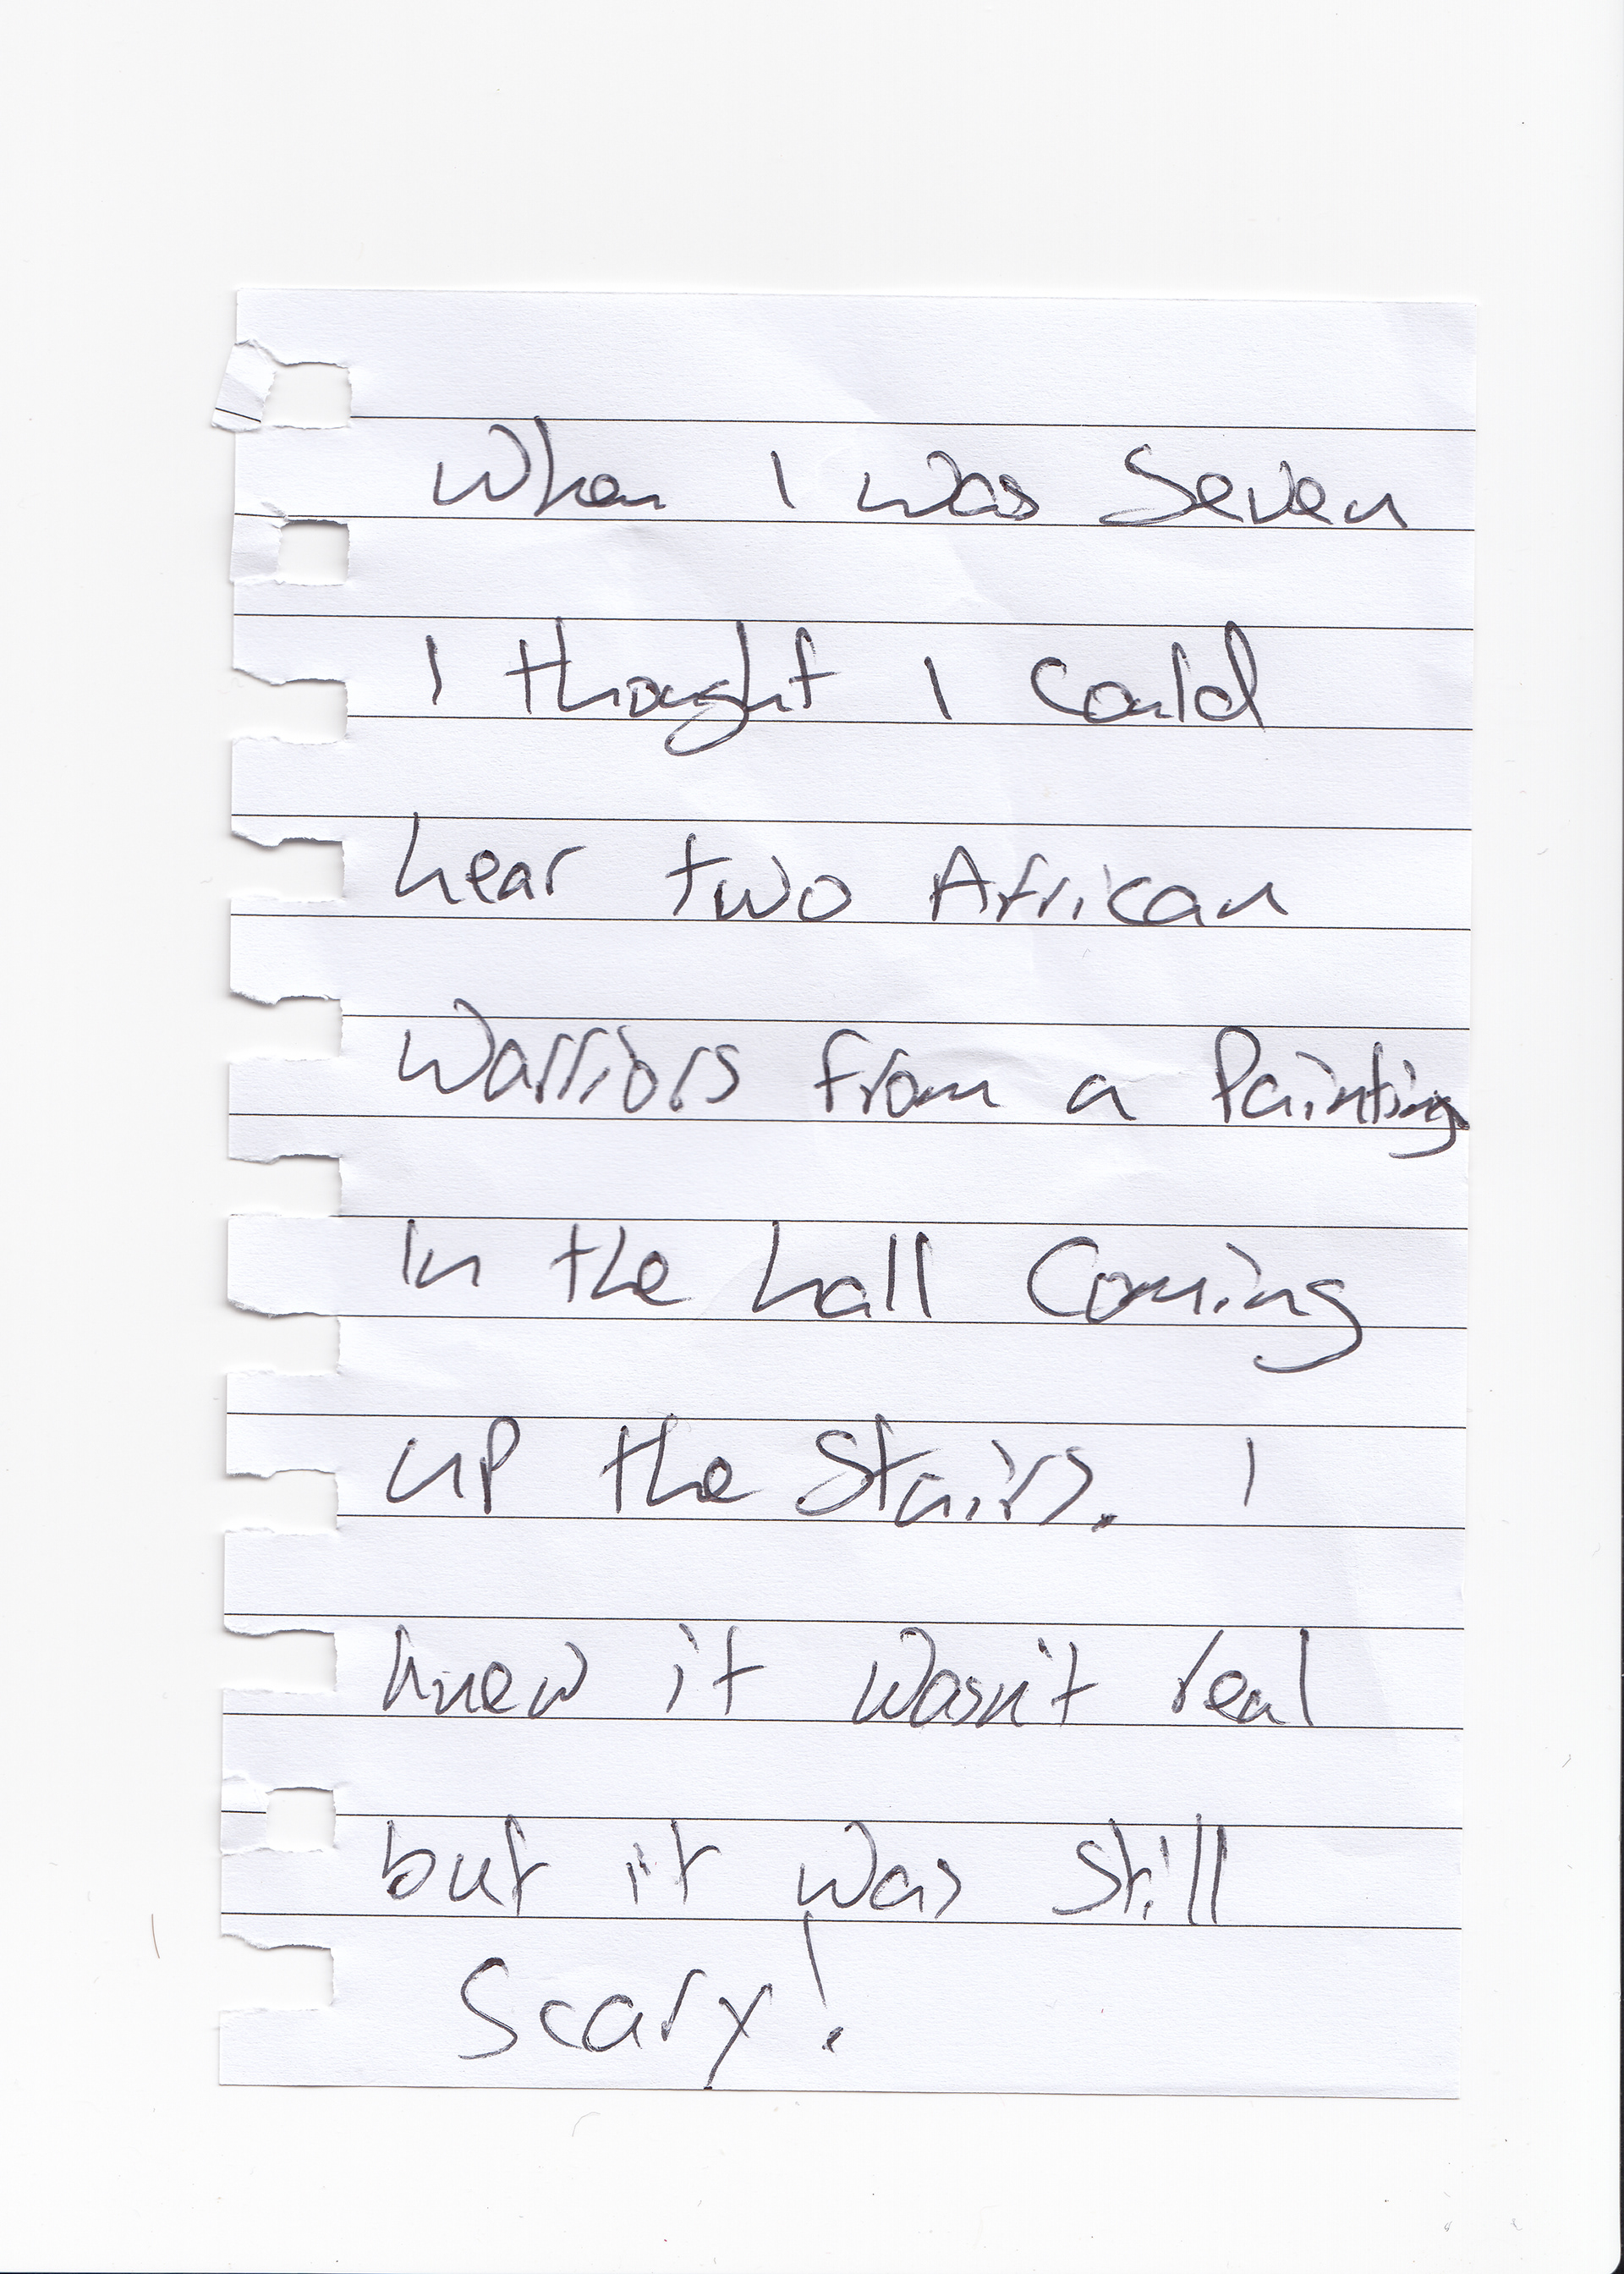 When I was Seven
I thought I could
hear two African
Warriors from a Painting
In the hall Coming
up the Stairs. I
knew it wasn't real
but it was still
Scary!